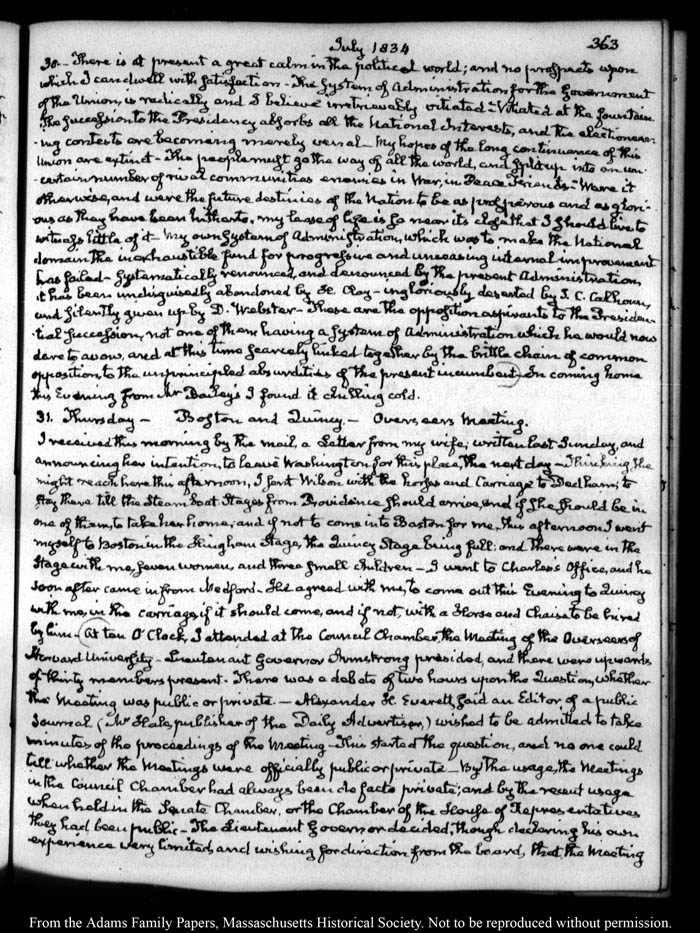 July 1834
363
30.- There is at present a great calm in the political world; and no prospects upon
which I can dwell with satisfaction - The System of Administration for the Government
of the Union, is radically and I believe irretrievably vitiated - Vitiated at the fountain.
The Succession to the Presidency absorbs all the National Interests, and the electioneer-
-ing contests are becoming merely venal - My hopes of the long continuance of this
Union are extinct - The people must go the way of all the world, and split up into an un-
-certain number of rival communities enemies in War, in Peace Friends - Were it
otherwise, and were the future destinies of the Nation to be as prosperous and as glori-
ous as they have been hitherto, my lease of life is so near its close that I should live to
witness little of it - My own System of Administration, which was to make the National
domain the inexhaustible fund for progressive and unceasing internal improvement
has failed - Systematically renounced, and denounced by the present Administration,
it has been undisguisedly abandoned by H. Clay - ingloriously deserted by J. C. Calhoun,
and silently given up by D. Webster - These are the opposition aspirants to the Presiden-
tial Succession, not one of them having a System of Administration which he would now
dare to avow, and at this time scarcely linked together by the brittle chain of common
opposition to the unprincipled absurdities of the present incumbent) - In coming home
this Evening from Mr Bailey's I found it chilling cold.
31. Thursday - Boston and Quincy. - Overseers Meeting.
I received this morning by the mail, a Letter from my wife, written last Sunday, and
announcing her intention, to leave Washington for this place, the next day - Thinking, she
might reach here this afternoon, I sent Wilson with the horses and Carriage to Dedham, to
stay there till the Steam boat Stages from Providence should arrive, and if she should be in
one of them, to take her home; and if not to come into Boston for me, this afternoon I went
myself to Boston in the Hingham Stage, the Quincy Stage being full; and there were in the
Stage with me, seven women, and three small children - I went to Charles's Office, and he
soon after came in from Medford - He agreed with me, to come out this Evening to Quincy
with me, in the carriage, if it should come, and if not, with a Horse and Chaise to be hired
by him - (At ten O'Clock, I attended at the Council Chamber, the Meeting of the Overseers of
Harvard University - Lieutenant Governor Armstrong presided, and there were upwards
of thirty members present - There was a debate of two hours upon the Question, whether
the Meeting was public or private. - Alexander H. Everett, said an Editor of a public
Journal (Mr Hale, publisher of the Daily Advertiser,) wished to be admitted to take
minutes of the proceedings of the Meeting - This started the question, and no one could
tell whether the Meetings were officially public or private - By the usage, the Meetings
in the Council Chamber had always been de facto private; and by the recent usage
when held in the Senate Chamber, or the Chamber of the House of Representatives
they had been public - The Lieutenant Governor decided, though declaring his own
experience very limited, and wishing for direction from the board, that the Meeting
From the Adams Family Papers, Massachusetts Historical Society. Not to be reproduced without permission.